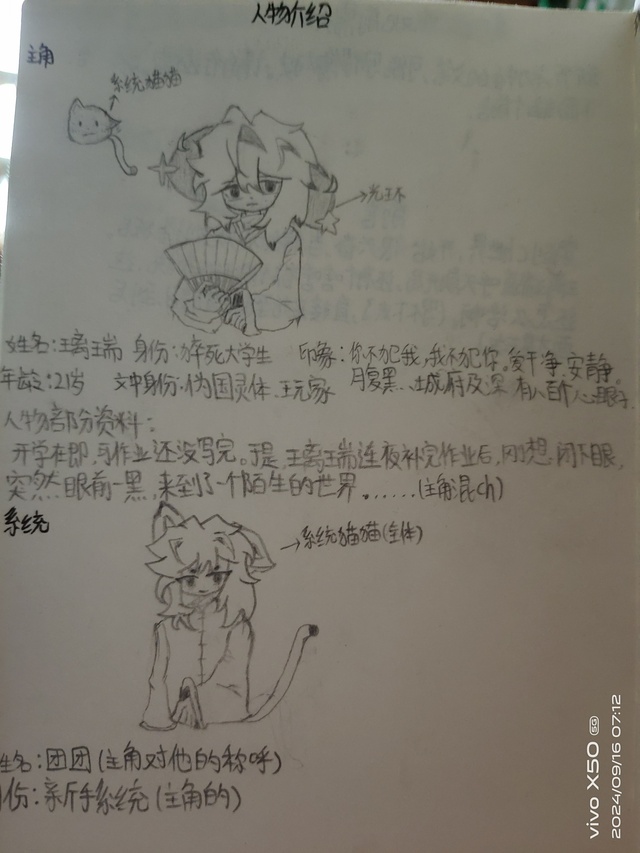 人物介绍
主角
系统猫猫
光环
姓名:王离瑞 身份:猝死大学生 印象:你不犯我,我不犯你。爱干净,安静。
年龄:21岁 文中身份:伪国灵体、玩家 腹黑、城府及深 有八百个心眼子
人物部分资料:
开学在即,写作业还没写完。于是,王离瑞连夜补完作业后,刚想闭下眼,
突然眼前一黑,来到了一个陌生的世界。……(主角:混ch)
系统
系统猫猫(主体)
姓名:团团(主角对他的称呼)
份:新手系统(主角的)
vivo X50 5G
2024/09/16 07:12